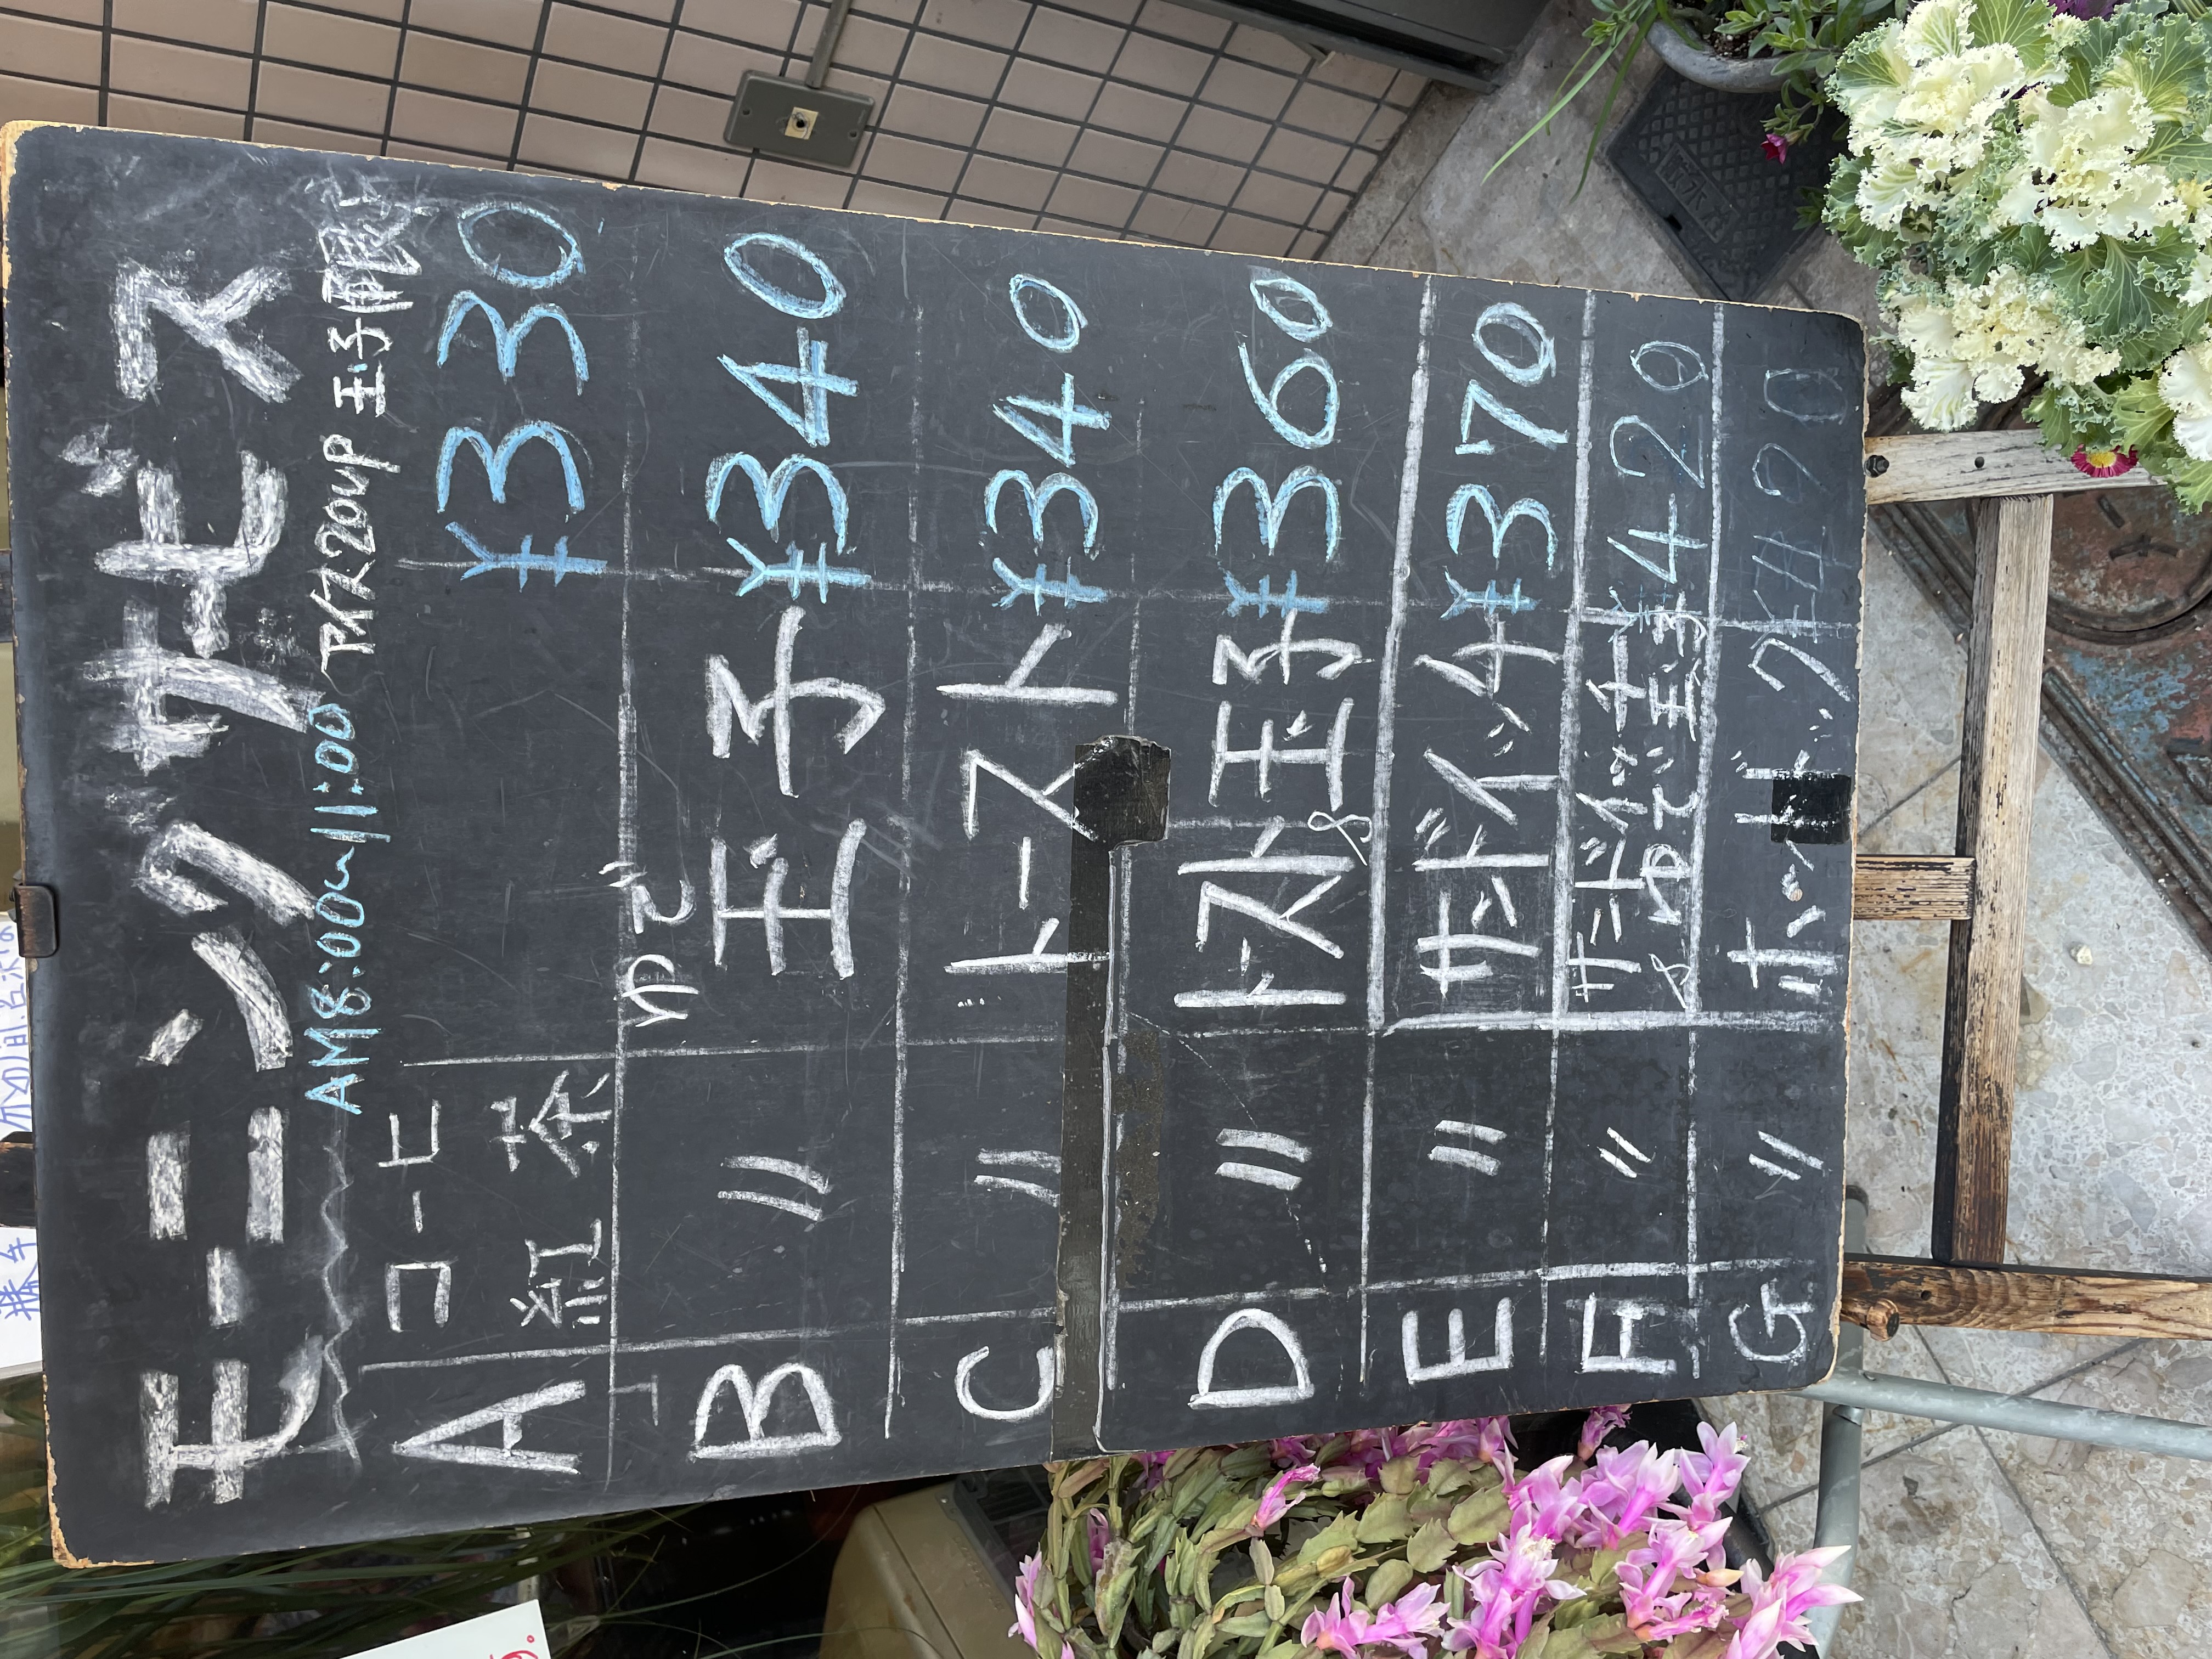 モーニングサービス
AM8:00〜11:00 アイス20up 玉子
A コーヒ 紅茶 ¥330
B 〃 ゆで玉子 ¥340
C 〃 トースト ¥340
D 〃 トースト&玉子 ¥360
E 〃 サンドイッチ ¥370
F 〃 サンドイッチ&ゆで玉子 ¥420
G 〃 ホットドッグ ¥420